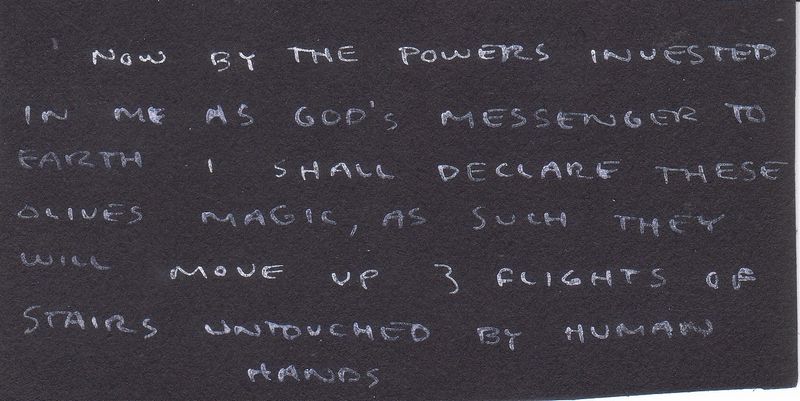 ' NOW BY THE POWERS INVESTED
IN ME AS GOD'S MESSENGER TO
EARTH I SHALL DECLARE THESE
OLIVES MAGIC, AS SUCH THEY
WILL MOVE UP 3 FLIGHTS OF
STAIRS UNTOUCHED BY HUMAN
HANDS